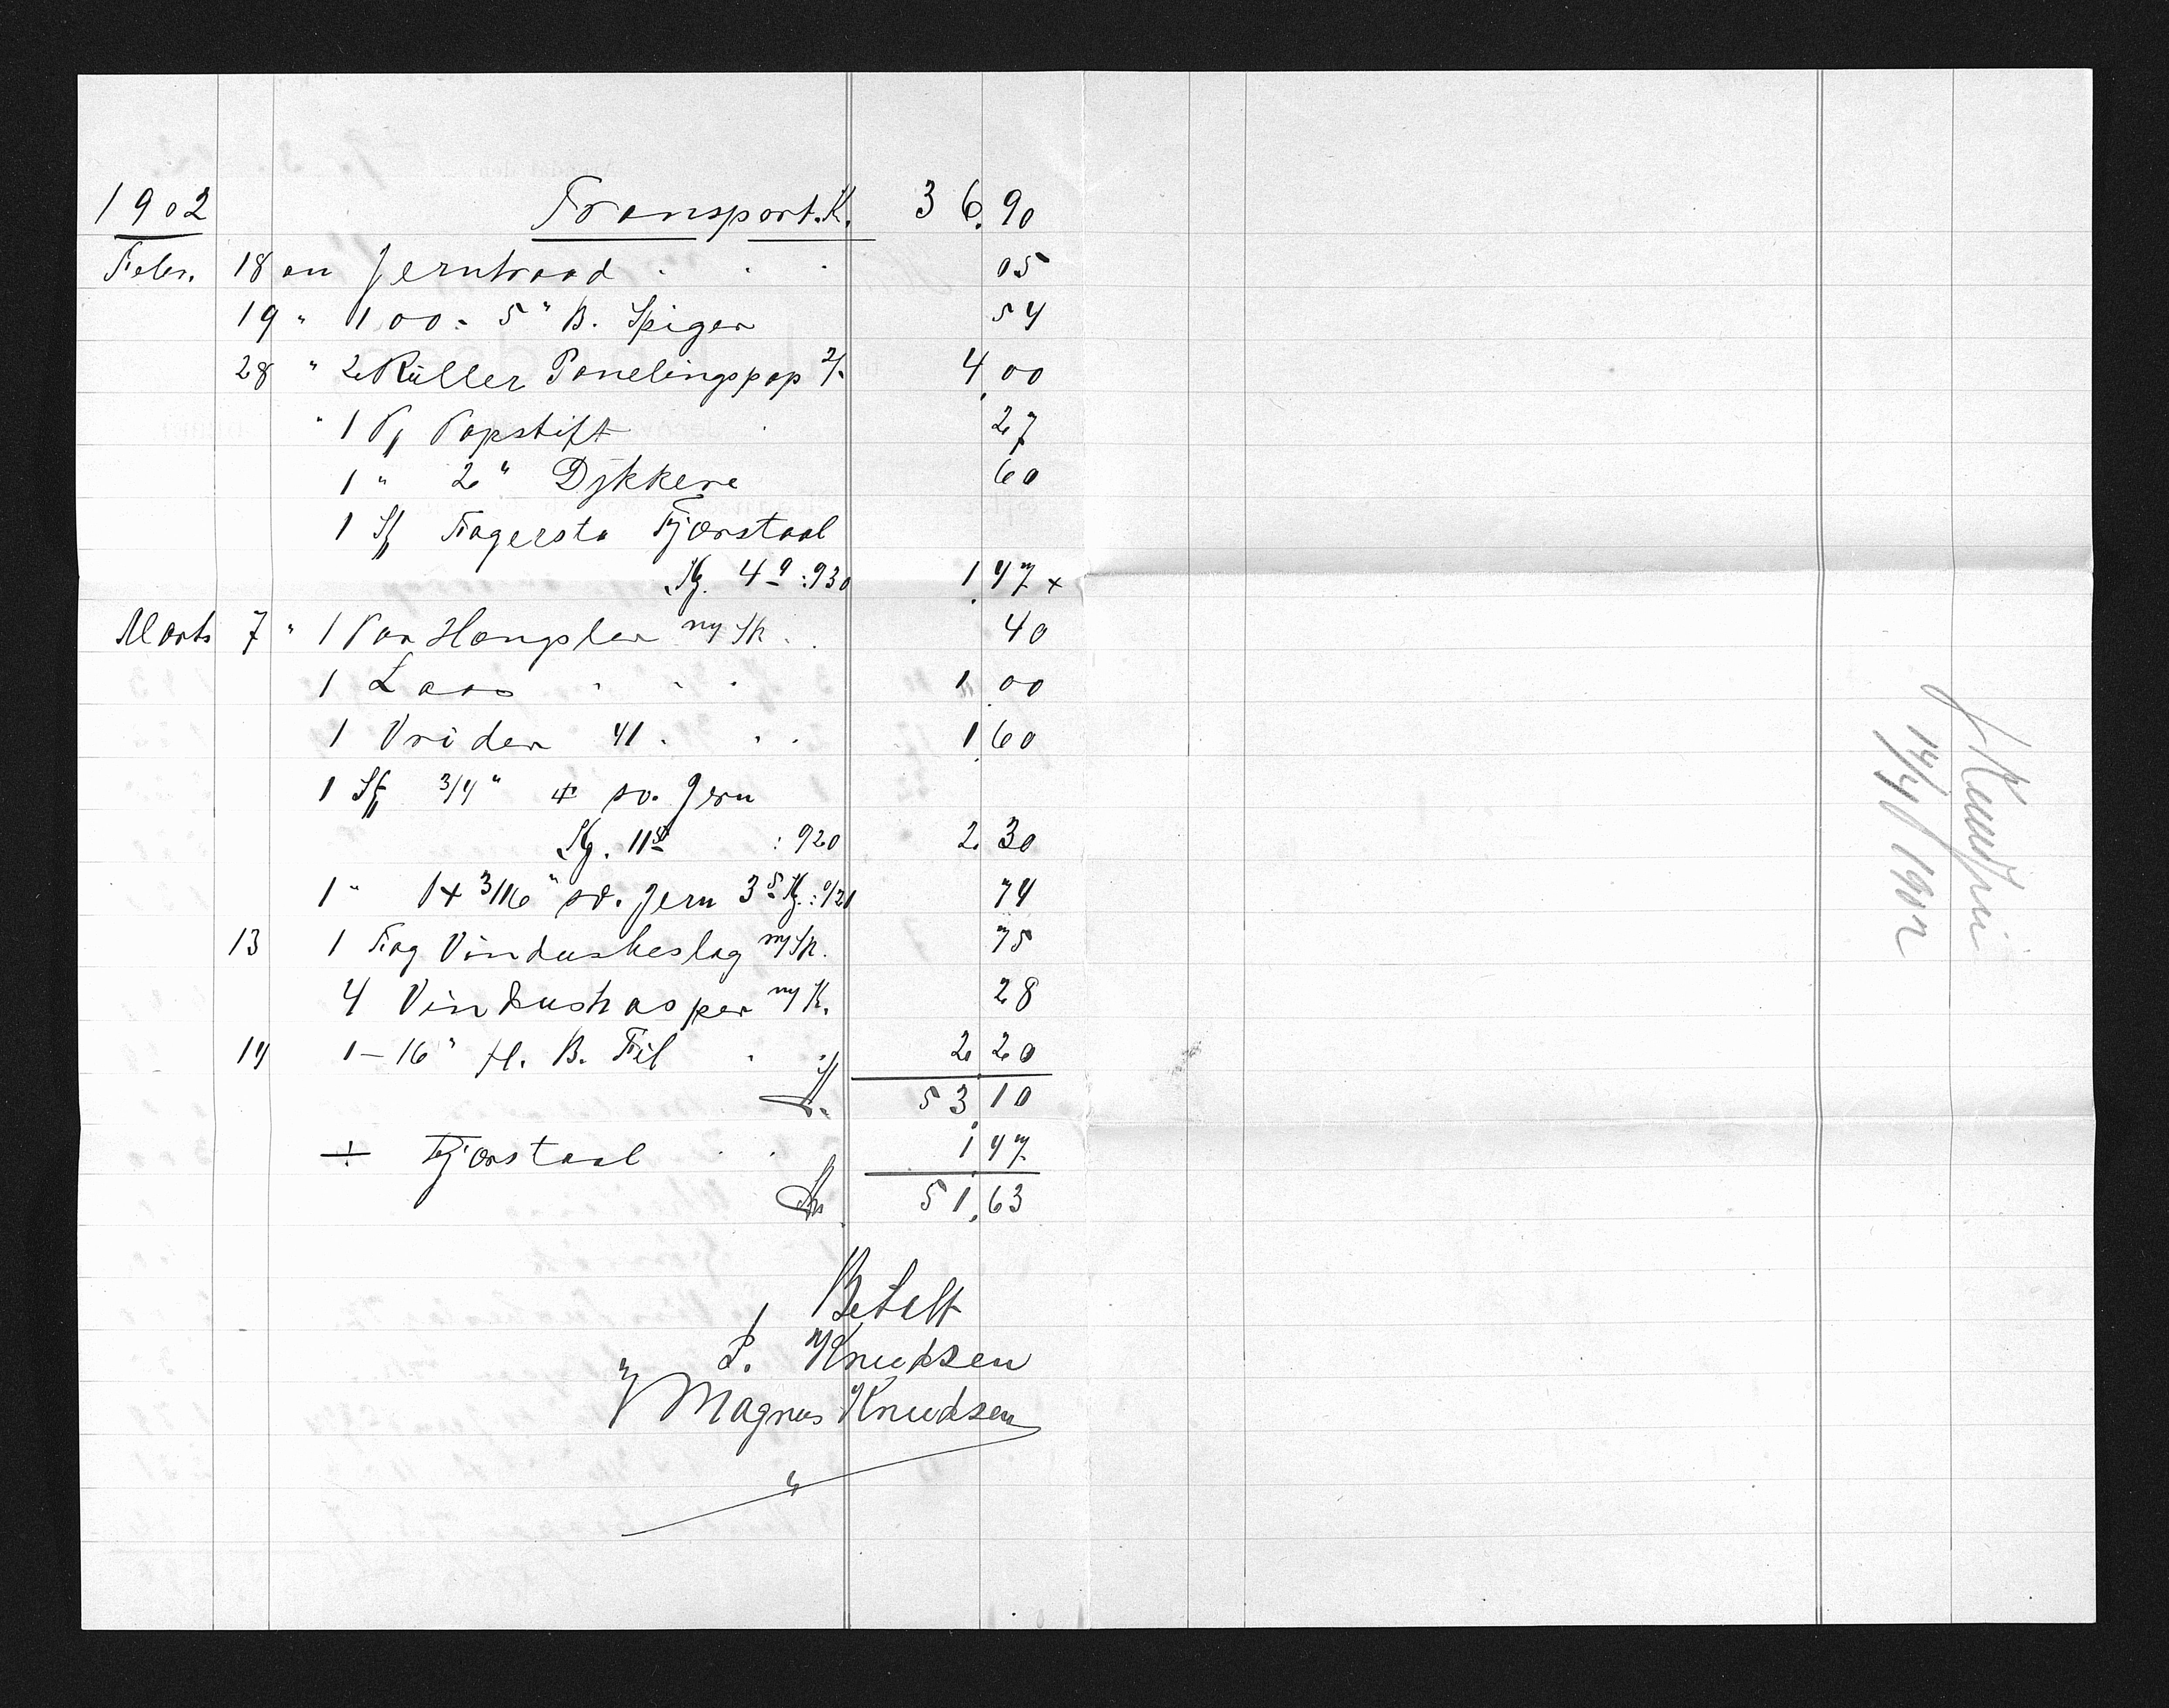 1902 Transport. K. 36.90
Febr. 18 an Jerntraad . . . 05
19 " 100 - 5" B. Spiger 54
28 " 2 Ruller Panelingspap 2/- 4.00
" 1 P. Papstift . 27
1 " 2" Dykkere 60
1 St. Fagersta Fjærstaal
Kg. 4⁹ : 930 1.47 x
Marts 7 " 1 Par Hængsler m/Sk. . 40
1 Laas " " " 1.00
1 Vrider 41 . . . 1.60
1 St. 3/4" # sv. Jern
Kg. 11⁵ : 920 2.30
1 " 1 x 3/16" sv. Jern 3⁵ Kg. : 921 74
13 1 Fag Vindusbeslag m/Sk. 75
4 Vindushasper m/K. 28
14 1 - 16" fl. B. Fil . . 2.20
Kr. 53.10
÷ Fjærstaal . . 1.47
Kr. 51.63
Betalt
L. Knudsen
Magnus Knudsen
L Knudsen
14/4 1902